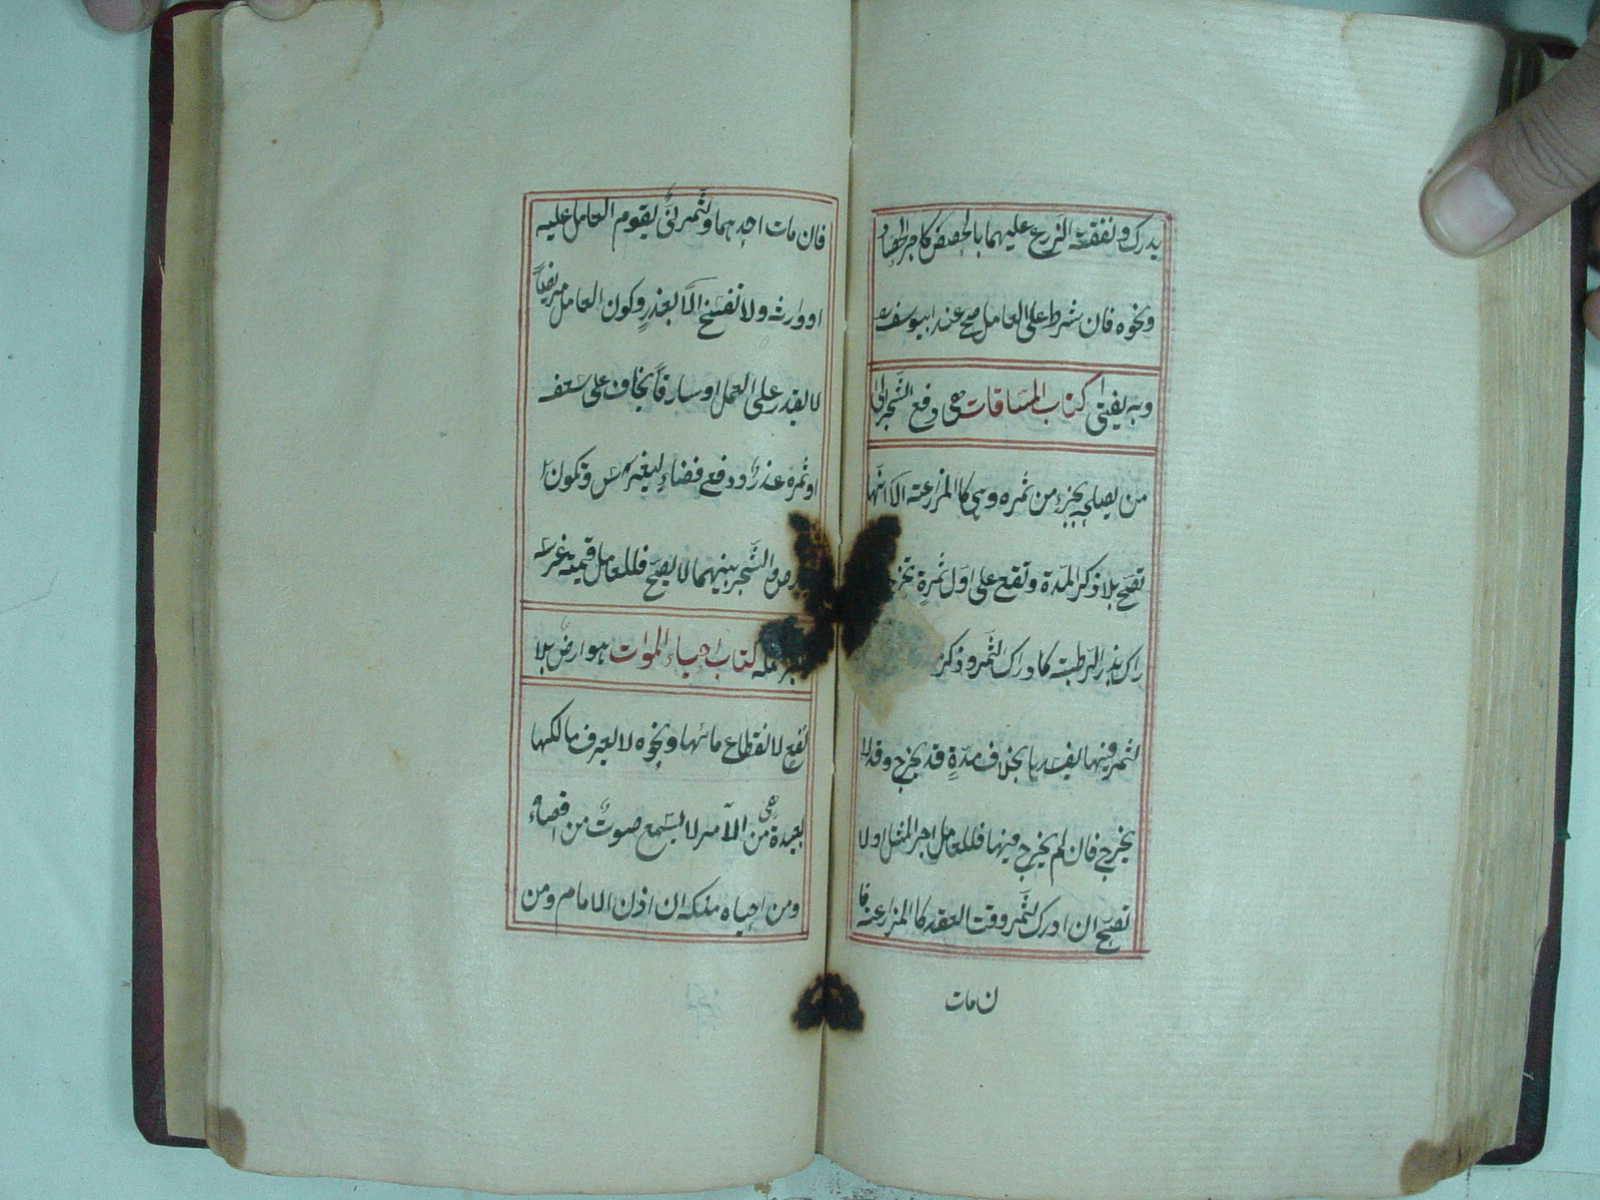 يدرك ونفقة الزرع عليهما بالحصص كاجر الحصاد
ونحوه فان شرط على العامل صح عند ابيوسف
وبه يفتى كتاب المساقات هى دفع الشجر الى
من يصلحه بجزء من ثمره وهى كالمزارعة الا انها
تصح بلا ذكر المدة وتقع على اول ثمرة تخرج
راك بذر الرطبة كادراك الثمر وذكر
لثمر فيها يفسدها بخلاف مدة قد يخرج وقد لا
يخرج فان لم يخرج فيها فللعامل اجر المثل او لا
تصح ان ادرك الثمر وقت العقد كالمزارعة فا
ن مات
فان مات احدهما والثمر نى يقوم العامل عليه
او وارثه ولا تفسخ الا بعذر وكون العامل مريضا
لا يقدر على العمل او سارقا يخاف على سعفه
او ثمره عذر ودفع فضاء ليغرس وتكون
رض والشجر بينهما لا يصح فللعامل قيمة غرسه
كتاب احياء الموات هو ارض بلا
نفع لانقطاع مائها ونحوه لا يعرف مالكها
بعيدة من العامر لا يسمع صوت من اقصاه
ومن احياه ملكه ان اذن الامام ومن